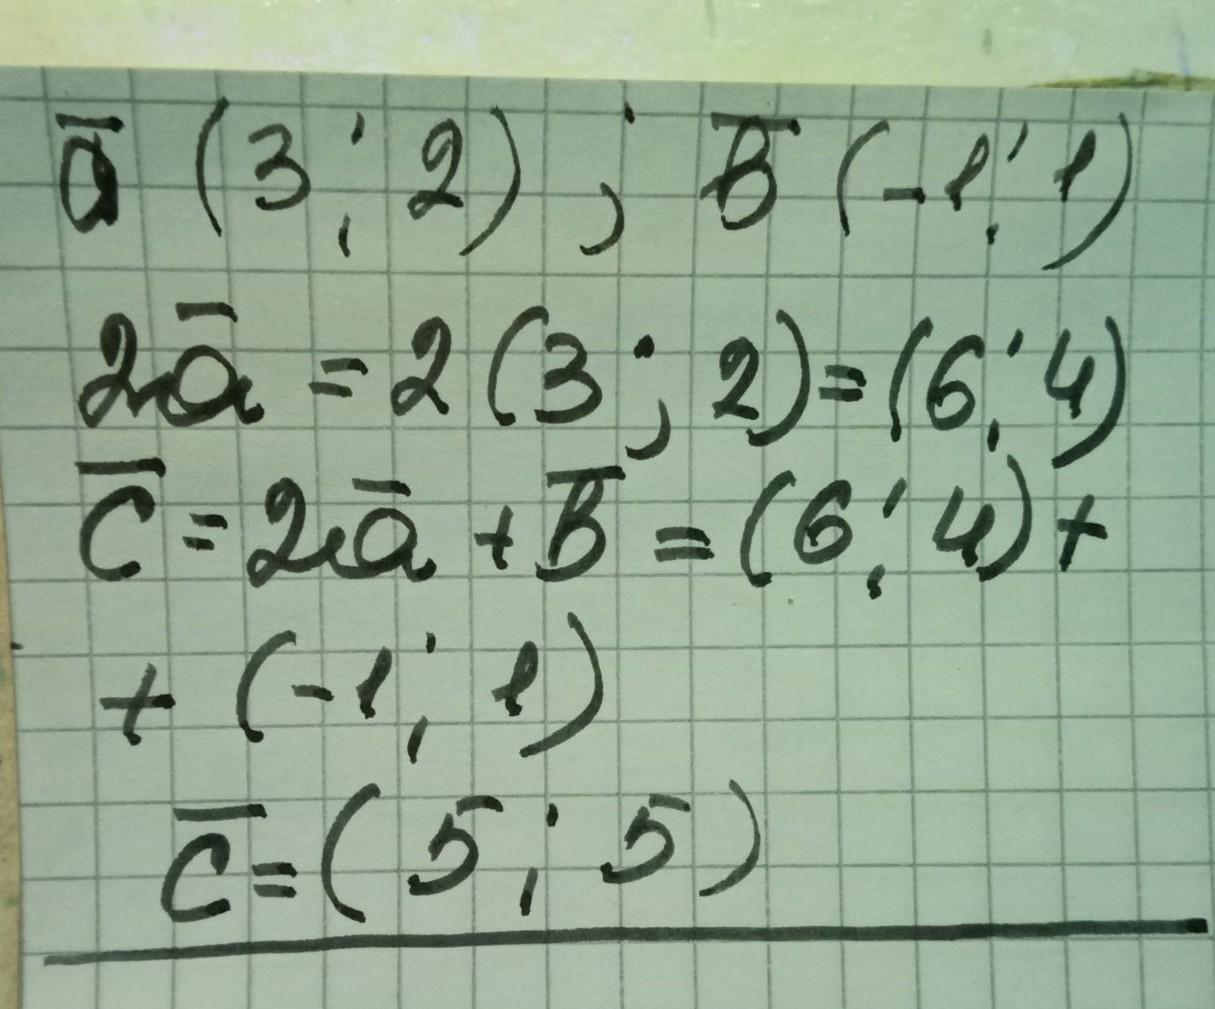 a̅ (3; 2) ; B̅ (-1; 1)
2a̅ = 2 (3; 2) = (6; 4)
C̅ = 2a̅ + B̅ = (6; 4) +
+ (-1; 1)
C̅ = (5; 5)